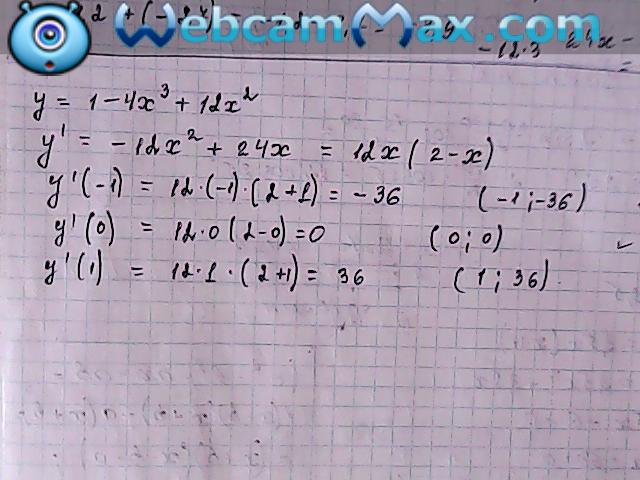 WebcamMax.com
- 12·3
y = 1 - 4x³ + 12x²
y' = - 12x² + 24x = 12x ( 2 - x)
y'(-1) = 12·(-1)·(2+1) = - 36 (-1 ; -36)
y'(0) = 12·0 (2-0) = 0 (0 ; 0)
y'(1) = 12·1·(2+1) = 36 (1 ; 36)